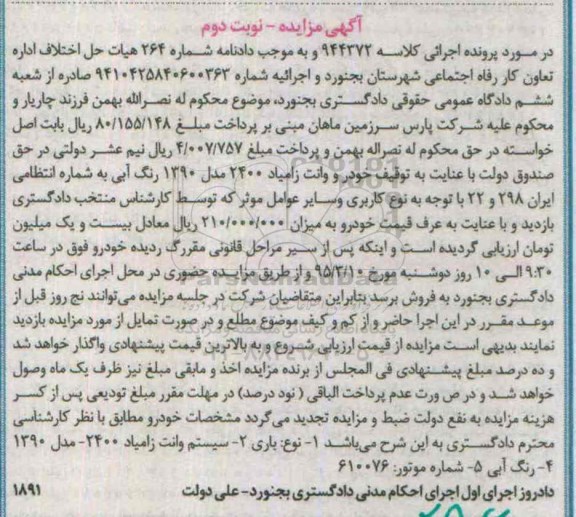 آگهی مزایده - نوبت دوم
در مورد پرونده اجرائی کلاسه ۹۴۴۳۷۲ و به موجب دادنامه شماره ۲۶۴ هیات حل اختلاف اداره
تعاون کار رفاه اجتماعی شهرستان بجنورد و اجرائیه شماره ۹۴۱۰۴۲۵۸۴۰۶۰۰۳۶۳ صادره از شعبه
ششم دادگاه عمومی حقوقی دادگستری بجنورد، موضوع محکوم له نصرالله بهمن فرزند چاریار و
محکوم علیه شرکت پارس سرزمین ماهان مبنی بر پرداخت مبلغ ۸۰/۱۵۵/۱۴۸ ریال بابت اصل
خواسته در حق محکوم له نصراله بهمن و پرداخت مبلغ ۴/۰۰۷/۷۵۷ ریال نیم عشر دولتی در حق
صندوق دولت با عنایت به توقیف خودر و وانت زامیاد ۲۴۰۰ مدل ۱۳۹۰ رنگ آبی به شماره انتظامی
ایران ۲۹۸ و ۲۲ با توجه به نوع کاربری وسایر عوامل موثر که توسط کارشناس منتخب دادگستری
بازدید و با عنایت به عرف قیمت خودرو به میزان ۲۱۰/۰۰۰/۰۰۰ ریال معادل بیست و یک میلیون
تومان ارزیابی گردیده است و اینکه پس از سیر مراحل قانونی مقررگ ردیده خودرو فوق در ساعت
۹:۳۰ الی ۱۰ روز دوشنبه مورخ ۹۵/۳/۱۰ و از طریق مزایده حضوری در محل اجرای احکام مدنی
دادگستری بجنورد به فروش برسد بنابراین متقاضیان شرکت در جلسه مزایده می‌توانند نج روز قبل از
موعد مقرر در این اجرا حاضر و از کم و کیف موضوع مطلع و در صورت تمایل از مورد مزایده بازدید
نمایند بدیهی است مزایده از قیمت ارزیابی شروع و به بالاترین قیمت پیشنهادی واگذار خواهد شد
و ده درصد مبلغ پیشنهادی فی المجلس از برنده مزایده اخذ و مابقی مبلغ نیز ظرف یک ماه وصول
خواهد شد و در ص ورت عدم پرداخت الباقی ( نود درصد) در مهلت مقرر مبلغ تودیعی پس از کسر
هزینه مزایده به نفع دولت ضبط و مزایده تجدید می‌گردد مشخصات خودرو مطابق با نظر کارشناسی
محترم دادگستری به این شرح می‌باشد ۱- نوع: باری ۲- سیستم وانت زامیاد ۲۴۰۰- مدل ۱۳۹۰
۴- رنگ آبی ۵- شماره موتور: ۶۱۰۰۷۶
دادروز اجرای اول اجرای احکام مدنی دادگستری بجنورد- علی دولت ۱۸۹۱